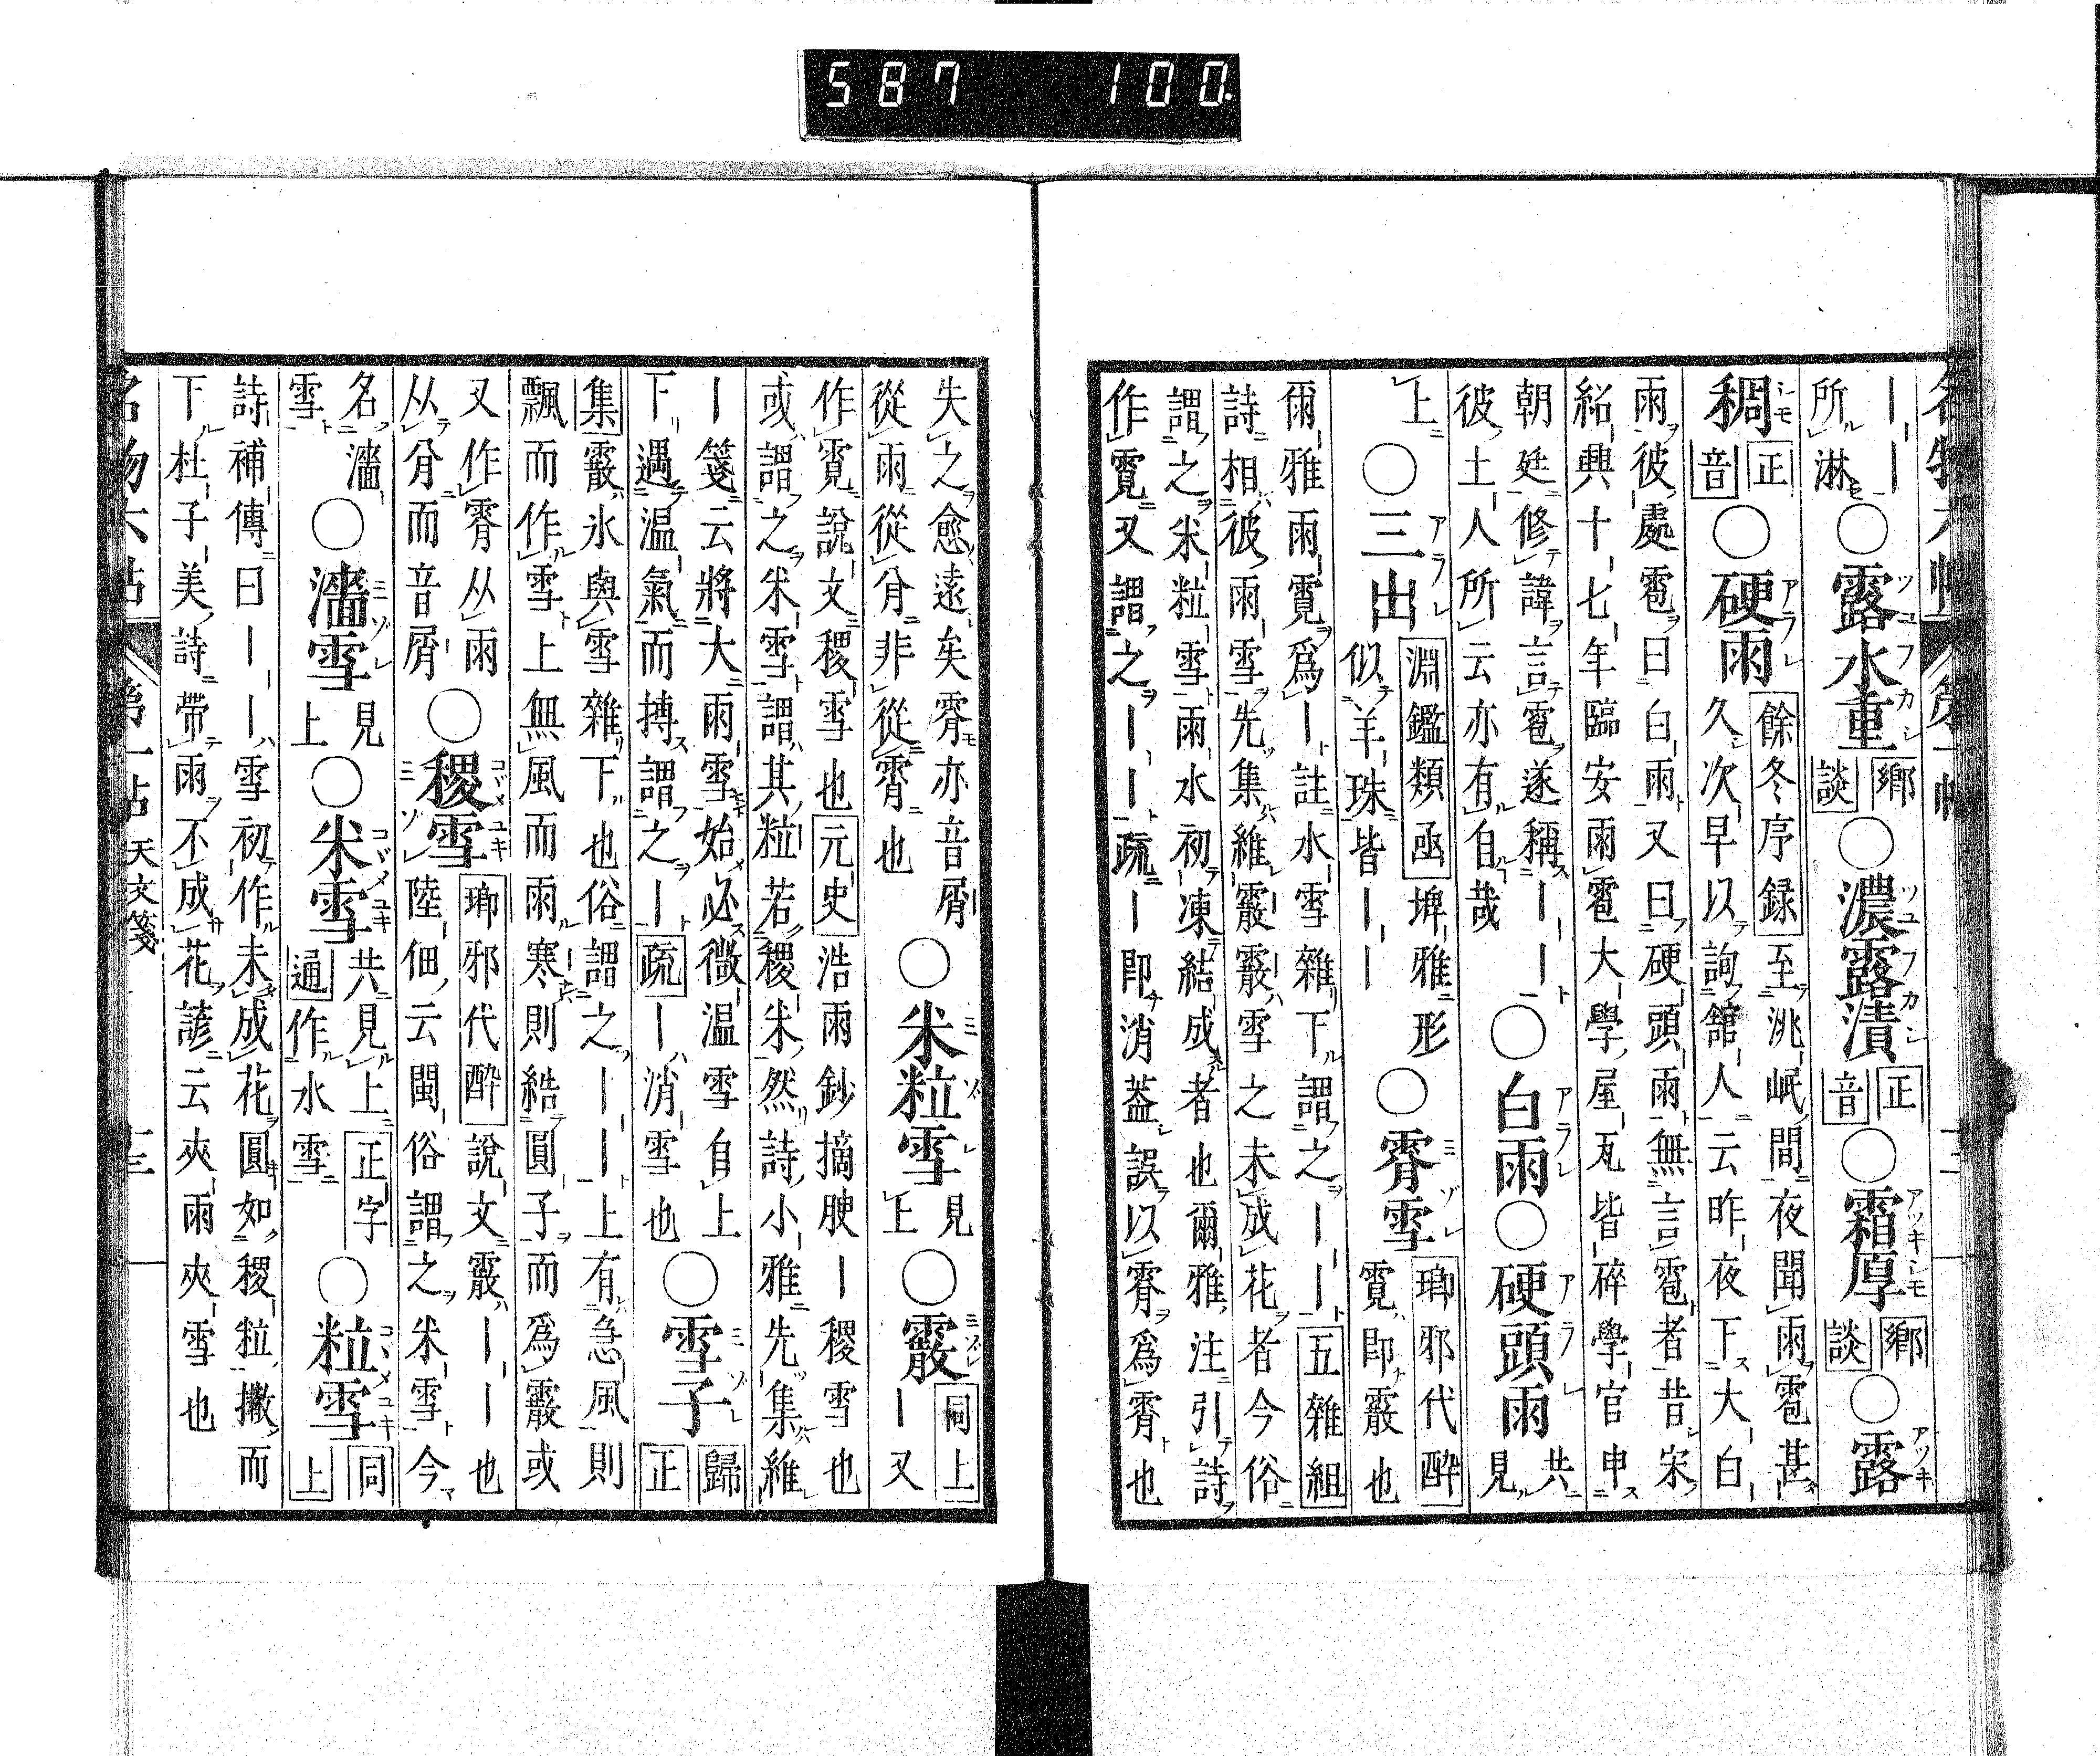 587 100.
｜｜
所淋○露水重鄕談○濃露漬正音○霜厚鄕談○露
稠正音○硬雨餘冬序録至洮岷間夜聞雨雹甚
久次早以詢舘人云昨夜下大白
雨彼處雹曰白雨又曰硬頭雨無言雹者昔宋
紹興十七年臨安雨雹大學屋瓦皆碎學官申
朝廷修諱言雹遂稱｜｜
彼土人所云亦有自哉○白雨○硬頭雨共見
上○三出淵鑑類函埤雅形
似羊珠皆｜｜○霄雪瑯邪代醉
霓即霰也
爾雅雨霓爲｜註水雪雜下謂之｜｜五雜組
詩相彼雨雪先集維霰霰雪之未成花者今俗
謂之米粒雪雨水初凍結成者也爾雅注引詩
作霓又謂之｜｜疏｜即消葢誤以霄爲霄也
失之愈遠矣霄亦音屑
從雨從肖非從霄也○米粒雪見上○霰同上｜又
作霓說文稷雪也元史浩雨鈔摘腴｜稷雪也
或謂之米雪謂其粒若稷米然詩小雅先集維
｜箋云將大雨雪始必微温雪自上
下遇温氣而摶謂之｜疏｜消雪也○雪子歸正
集霰氷與雪雜下也俗謂之｜｜上有急風則
飄而作雪上無風而雨寒則結圓子而爲霰或
又作霄从雨
从肖而音屑○稷雪瑯邪代醉說文霰｜｜也
陸佃云閩俗謂之米雪今
名濇
雪○濇雪見上○米雪共見上正字
通作水雪○粒雪同上
詩補傳曰｜｜雪初作未成花圓如稷粒撒而
下杜子美詩帶雨不成花諺云夾雨夾雪也
第一帖 天文箋 十三